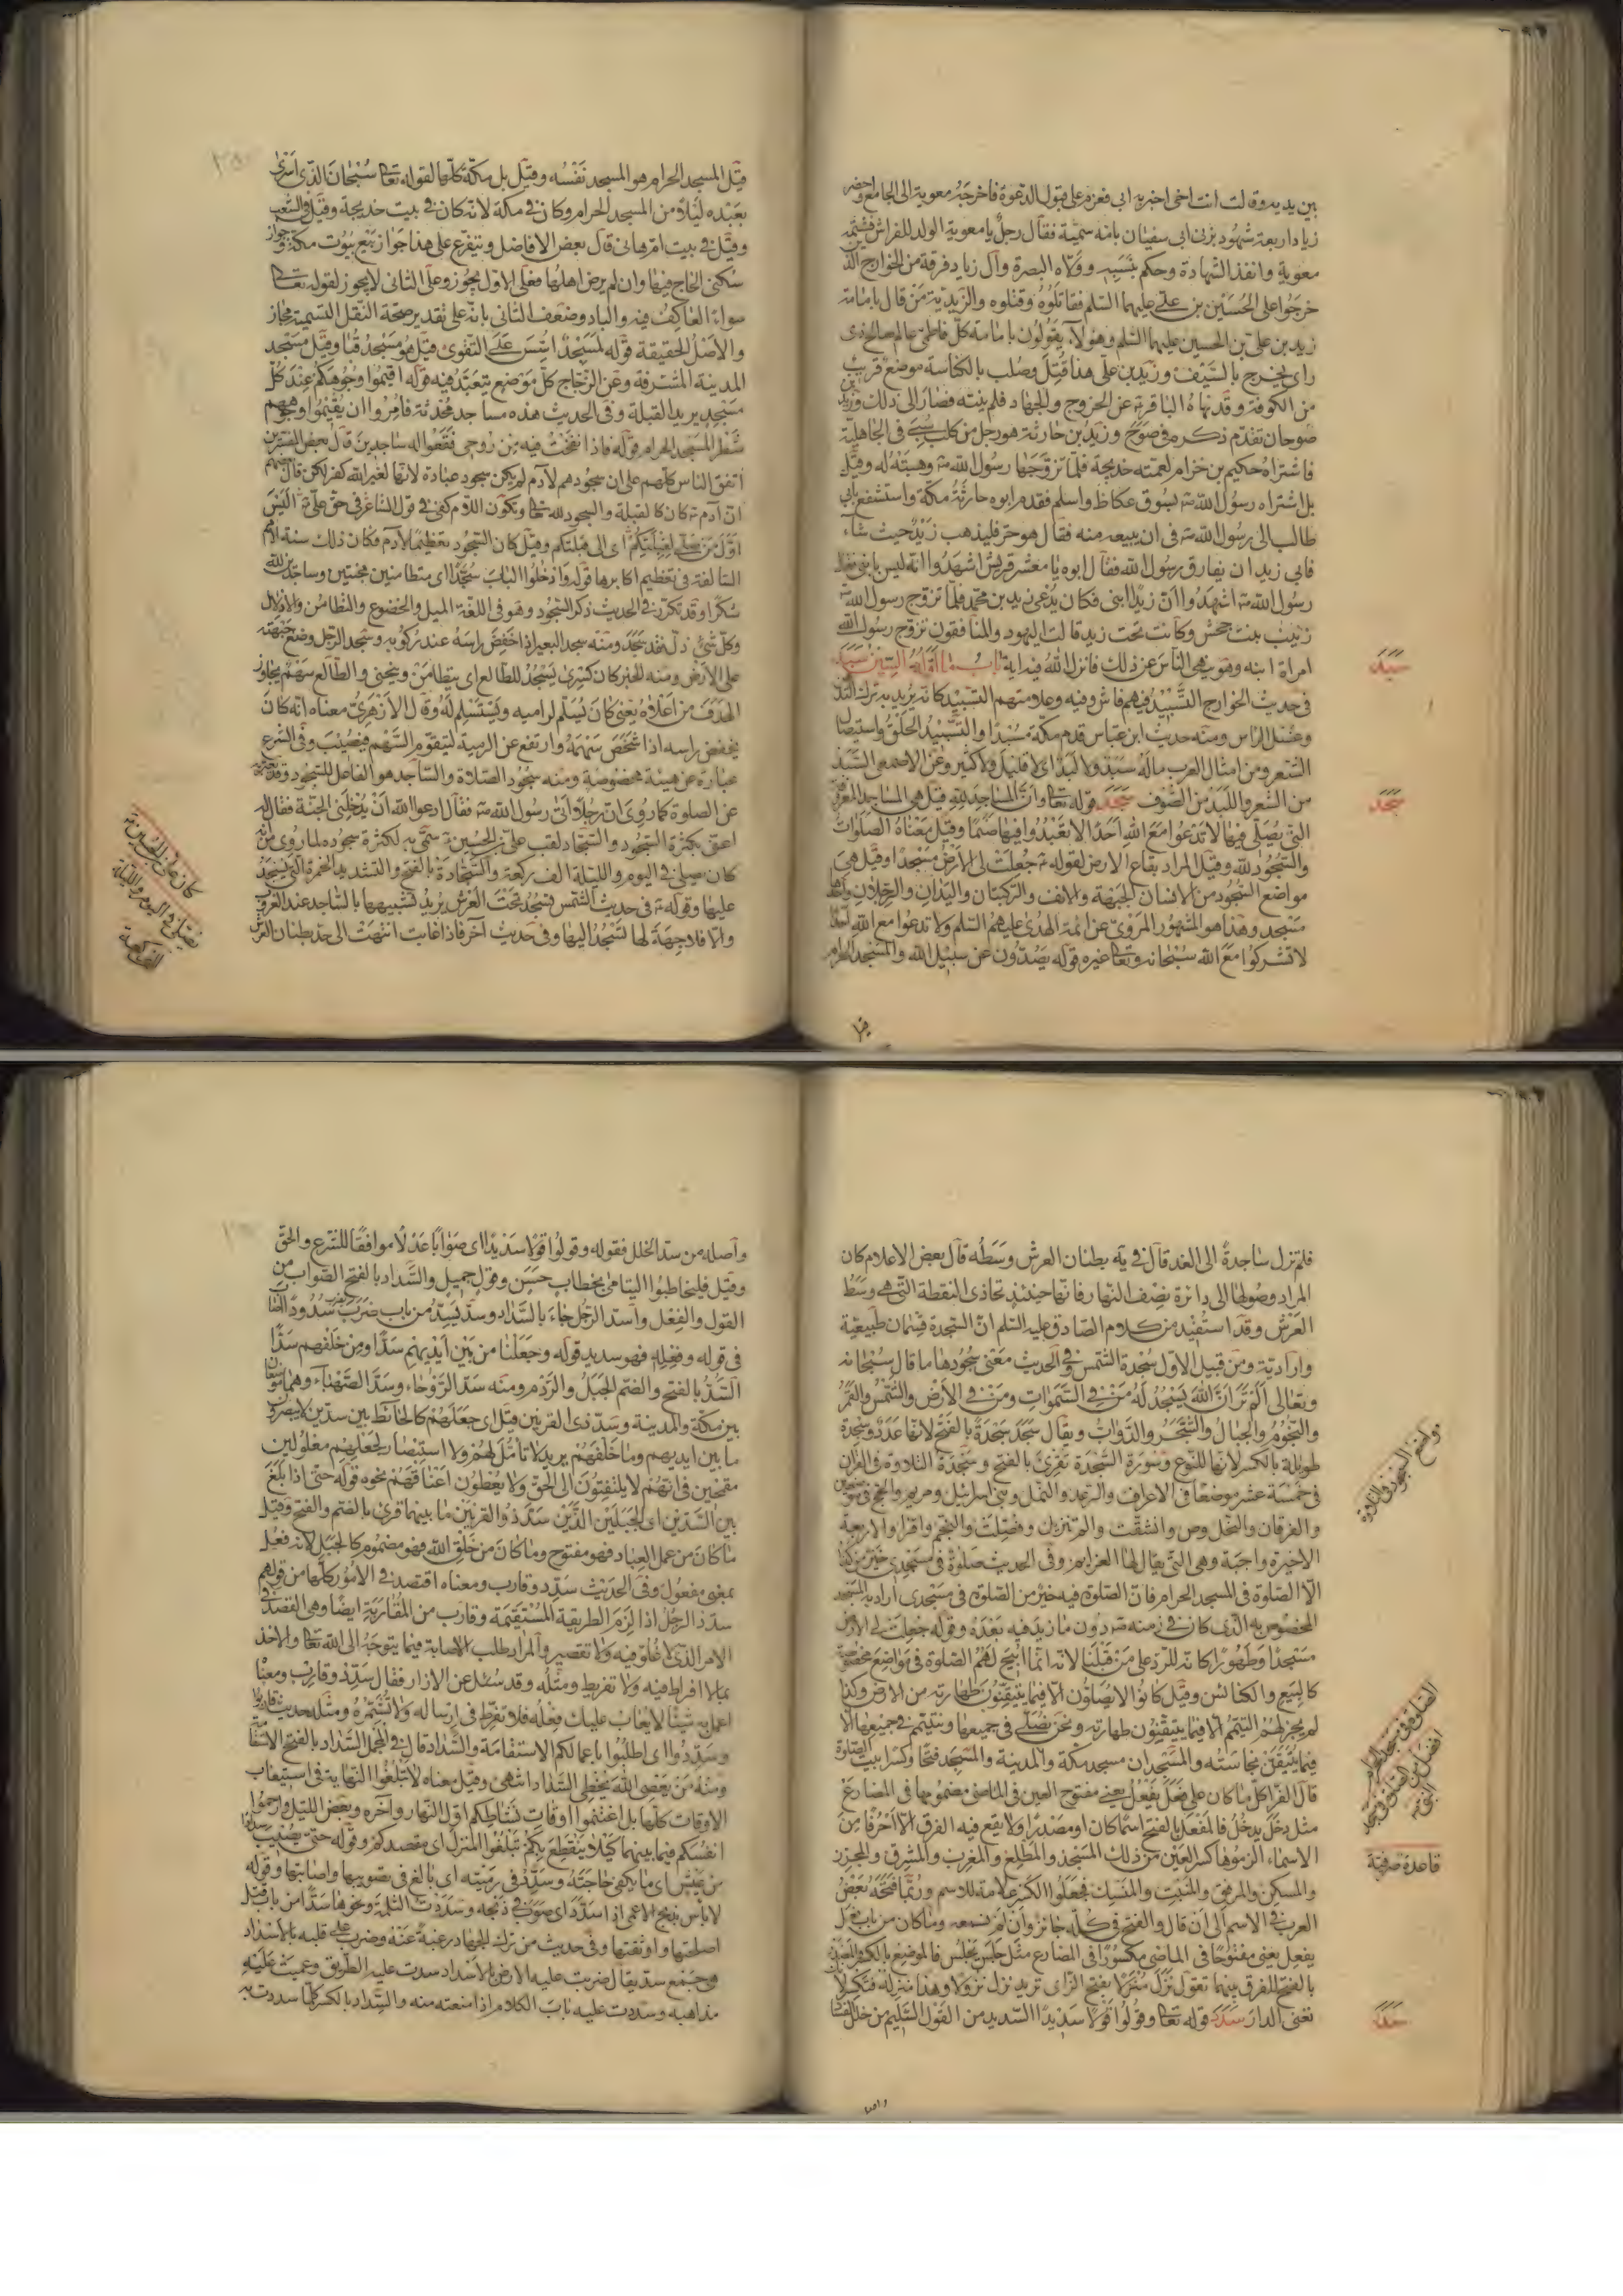 بين يديه وقالت انت اخى اخبرنى به ابى فعزم على قبول الدعوة فاخرجه معوية الى الجامع واحضر
زيادا اربعة شهود بزنى ابى سفيان بامه سمية فقال رجل يا معوية الولد للفراش فشتمه
معوية وانفذ الشهادة وحكم بنسبه وولاه البصرة وآل زياد فرقة من الخوارج
خرجوا على الحسين بن على عليهما السلم فقاتلوه وقتلوه والزيدية من قال بامامة
زيد بن على بن الحسين عليهما السلم وهؤلاء يقولون بامامة كل فاطمى عالم صالح ذى
راى يخرج بالسيف وزيد بن على هذا قتل وصلب بالكناسة موضع قريب
من الكوفة وقد نهاه الباقر عن الخروج والجهاد فلم ينته فصار الى ذلك وزيد بن
صوحان تقدم ذكره فى صوح وزيد بن حارثة هو رجل من كلب سبى فى الجاهلية
فاشتراه حكيم بن خزام لعمته خديجة فلما تزوجها رسول الله وهبته له وقيل
بل اشتراه رسول الله بسوق عكاظ واسلم فقدم ابوه حارثة مكة واستشفع بابى
طالب الى رسول الله فى ان يبيعه منه فقال هو حر فليذهب زيد حيث شاء
فابى زيد ان يفارق رسول الله فقال ابوه يا معشر قريش اشهدوا انه ليس بابنى فقال
رسول الله اشهدوا ان زيدا ابنى فكان يدعى زيد بن محمد فلما تزوج رسول الله
زينب بنت جحش وكانت تحت زيد قالت اليهود والمنافقون تزوج رسول الله
امراة ابنه وهو ينهى الناس عن ذلك فانزل الله فيه اية باب ما اوله السين سبد
سبد
فى حديث الخوارج التسبيد فيهم فاش وفيه وعلامتهم التسبيد كانه يريد به ترك التدهن
وغسل الراس ومنه حديث ابن عباس قدم مكة مسبدا والتسبيد الحلق واستيصال
الشعر ومن امثال العرب ماله سبد ولا لبد اى لا قليل ولا كثير وعن الاصمعى السبد
من الشعر واللبد من الصوف سجد قوله تعالى وان المساجد لله قيل هى المساجد المعروفة
سجد
التى يصلى فيها فلا تدعوا مع الله احدا لا تعبدوا فيها صنما وقيل معناه الصلوات
والسجود لله وقيل المراد بقاع الارض لقوله جعلت لى الارض مسجدا وقيل هى
مواضع السجود من الانسان الجبهة والانف والركبتان واليدان والرجلان واحدها
مسجد وهذا هو المشهور المروى عن ائمة الهدى عليهم السلم ولا تدعوا مع الله احدا
لا تشركوا مع الله سبحانه وتعالى غيره قوله يصدون عن سبيل الله والمسجد الحرام
قيل
قيل المسجد الحرام هو المسجد نفسه وقيل بل مكة كلها لقوله تعالى سبحان الذى اسرى
بعبده ليلا من المسجد الحرام وكان فى مكة لانه كان فى بيت خديجة وقيل فى الشعب
وقيل فى بيت ام هانى قال بعض الافاضل ويتفرع على هذا جواز بيع بيوت مكة وجواز
سكنى الحاج فيها وان لم يرض اهلها فعلى الاول يجوز وعلى الثانى لا يجوز لقوله تعالى
سواء العاكف فيه والباد وضعف الثانى بانه على تقدير صحة النقل التسمية مجاز
والاصل الحقيقة قوله لمسجد اسس على التقوى قيل هو مسجد قبا وقيل مسجد
المدينة المشرفة وعن الزجاج كل موضع يتعبد فيه قوله اقيموا وجوهكم عند كل
مسجد يريد القبلة وفى الحديث هذه مساجد محدثة فامروا ان يقيموا وجوههم
شطر المسجد الحرام قوله فاذا نفخت فيه من روحى فقعوا له ساجدين قال بعض المفسرين
اتفق الناس كلهم على ان سجودهم لآدم لم يكن سجود عبادة لانها لغير الله كفر لكن قال بعضهم
ان آدم كان كالقبلة والسجود لله تعالى وتكون اللام كفى فى قول الشاعر فى حق على اليس
اول من صلى لقبلتكم اى الى قبلتكم وقيل كان السجود تعظيما لآدم فكان ذلك سنة الامم
السالفة فى تعظيم اكابرها قوله وادخلوا الباب سجدا اى متطامنين مخبتين وساجدين لله
شكرا وقد تكرر فى الحديث ذكر السجود وهو فى اللغة الميل والخضوع والتطامن والاذلال
وكل شئ ذل فقد سجد ومنه سجد البعير اذا خفض راسه عند ركوبه وسجد الرجل وضع جبهته
على الارض ومنه الخبر كان كسرى يسجد للطالع اى يتطامن وينحنى والطالع سهم يجاوز
الهدف من اعلاه يعنى كان يسلم لراميه ويستسلم له وقال الازهرى معناه انه كان
يخفض راسه اذا شخص سهمه وارتفع عن الرمية ليتقوم السهم فيصيب وفى الشرع
عبارة عن هيئة مخصوصة ومنه سجود الصلاة والساجد هو الفاعل للسجود وقد يعبر به
عن الصلوة كما روى ان رجلا اتى رسول الله فقال ادعوا الله ان يدخلنى الجنة فقال له
اعنى بكثرة السجود والسجاد لقب على بن الحسين سمى به لكثرة سجوده لما روى من انه
كان يصلى فى اليوم والليلة الف ركعة والسجادة بالفتح والتشديد الخمرة التى يسجد
عليها وقوله فى حديث الشمس فتسجد تحت العرش يريد تشبيهها بالساجد عند الغروب
والا فلا جبهة لها تسجد اليها وفى حديث آخر فاذا غابت انتهت الى حد بطنان العرش
كان على بن الحسين
يصلى فى اليوم والليلة
الف ركعة
فلم تزل ساجدة الى الغد قال فى يه بطنان العرش وسطه قال بعض الاعلام كان
المراد وصولها الى دائرة نصف النهار فانها حينئذ تحاذى النقطة التى هى وسط
العرش وقد استفيد من كلام الصادق عليه السلم ان السجدة قسمان طبيعية
وارادية ومن قبيل الاول سجدة الشمس وفى الحديث معنى سجودها ما قال سبحانه
وتعالى الم تر ان الله يسجد له من فى السموات ومن فى الارض والشمس والقمر
والنجوم والجبال والشجر والدواب ويقال سجد سجدة بالفتح لانها عدد وسجدة
طويلة بالكسر لانها للنوع وسورة السجدة تقرئ بالفتح وسجدة التلاوة فى القران
فى خمسة عشر موضعا فى الاعراف والرعد والنحل وبنى اسرائيل ومريم والحج فى موضعين
والفرقان والنمل وص وانشقت والم تنزيل وفصلت والنجم واقرا والاربعة
الاخيرة واجبة وهى التى يقال لها العزايم وفى الحديث صلوة فى مسجدى خير من كذا
الا الصلوة فى المسجد الحرام فان الصلوة فيه خير من الصلوة فى مسجدى اراد به المسجد
المخصوص به الذى كان فى زمنه دون ما زيد فيه بعده وقوله جعلت لى الارض
مسجدا وطهورا كانه للرد على من قبلنا لانه انما ابيح لهم الصلوة فى مواضع مخصوصة
كالبيع والكنائس وقيل كانوا لا يصلون الا فيما يتيقنون طهارته من الارض وكذا
لم يجز لهم التيمم الا فيما يتيقنون طهارته ونحن نصلى فى جميعها ونتيمم فى جميعها الا
فيما يتيقن نجاسته والمسجدان مسجد مكة والمدينة والمسجد فتحا وكسرا بيت الصلوة
قال الفرا كل ما كان على فعل يفعل يعنى مفتوح العين فى الماضى مضمومها فى المضارع
مثل دخل يدخل فالمفعل بالفتح اسما كان او مصدرا ولا يقع فيه الفرق الا احرفا من
الاسماء الزموها كسر العين من ذلك المسجد والمطلع والمغرب والمشرق والمجزر
والمسكن والمرفق والمنبت والمنسك فجعلوا الكسر علامة للاسم وربما فتحه بعض
العرب فى الاسم الى ان قال والفتح فى كله جائز وان لم نسمعه وما كان من باب فعل
يفعل يعنى مفتوحا فى الماضى مكسورا فى المضارع مثل جلس يجلس فالموضع بالكسر والمصدر
بالفتح للفرق بينهما تقول نزل منزلا بفتح الزاى تريد نزل نزولا وهذا منزله فتكسر لانك
تعنى الدار سدد قوله تعالى وقولوا قولا سديدا السديد من القول السليم من خلل الفساد
مواضع السجود والتلاوة
الصلوة فى مسجد الحرام
افضل من الصلوة فى مسجد
النبى
قاعدة صرفية
سدد
واصله
وأصله من سد الخلل فقوله وقولوا قولا سديدا اى صوابا عدلا موافقا للشرع والحق
وقيل فليخاطبوا اليتامى بخطاب حسن وقول جميل والسداد بالفتح الصواب من
القول والفعل واسد الرجل جاء بالسداد وسد يسد من باب ضرب سدودا
فى قوله وفعله فهو سديد قوله وجعلنا من بين ايديهم سدا ومن خلفهم سدا
السد بالفتح والضم الجبل والردم ومنه سد الروحاء وسد الصهباء وهما موضعان
بين مكة والمدينة وسد ذى القرنين قيل اى جعلهم كالحائط بين سدين لا يبصرون
ما بين ايديهم وما خلفهم يريد لا تامل لهم ولا استبصار لجعلهم مغلولين
مقمحين فى انهم لا يلتفتون الى الحق ولا يعطون اعناقهم نحوه قوله حتى اذا بلغ
بين السدين اى الجبلين الذين سد ذو القرنين ما بينهما قرئ بالضم والفتح وقيل
ما كان من عمل العباد فهو مفتوح وما كان من خلق الله فهو مضموم كالجبل لانه فعل
بمعنى مفعول وفى الحديث سدد وقارب ومعناه اقتصد فى الامور كلها من قولهم
سدد الرجل اذا لزم الطريقة المستقيمة وقارب من المقاربة ايضا وهى القصد فى
الامر الذى لا غلو فيه ولا تقصير والمراد طلب الاصابة فيما يتوجه الى الله تعالى والاخذ
بما لا افراط فيه ولا تفريط ومثله وقد سئل عن الازار فقال سدد وقارب ومعنا
اعمل به شيئا لا يعاب عليك فعله فلا تفرط فى ارساله ولا تشمره ومثله حديث قاربوا
وسددوا اى اطلبوا باعمالكم الاستقامة والسداد قال فى المجمل السداد بالفتح الاستقامة
ومنه من يعصى الله يخطى السداد انتهى وقيل معناه لا تبلغوا النهاية فى استيعاب
الاوقات كلها بل اغتنموا اوقات نشاطكم اول النهار وآخره وبعض الليل وارحموا
انفسكم فيما بينهما كيلا ينقطع بكم تبلغوا المنزل اى مقصدكم وقوله حتى يصيب سدادا
من عيش اى ما يكفى حاجته وسدد فى رميته اى بالغ فى تصويبها واصابتها وقوله
لا باس بذبح الاعمى اذا سدد اى صوب فى ذبحه وسددت الثلمة ونحوها سدا من باب قتل
اصلحتها واوثقتها وفى حديث من ترك الجهاد رغبة عنه وضرب على قلبه بالاسداد
هى جمع سد يقال ضربت عليه الارض بالاسداد سدت عليه الطريق وعميت عليه
مذاهبه وسددت عليه باب الكلام اذا منعته منه والسداد بالكسر كلما سددت به